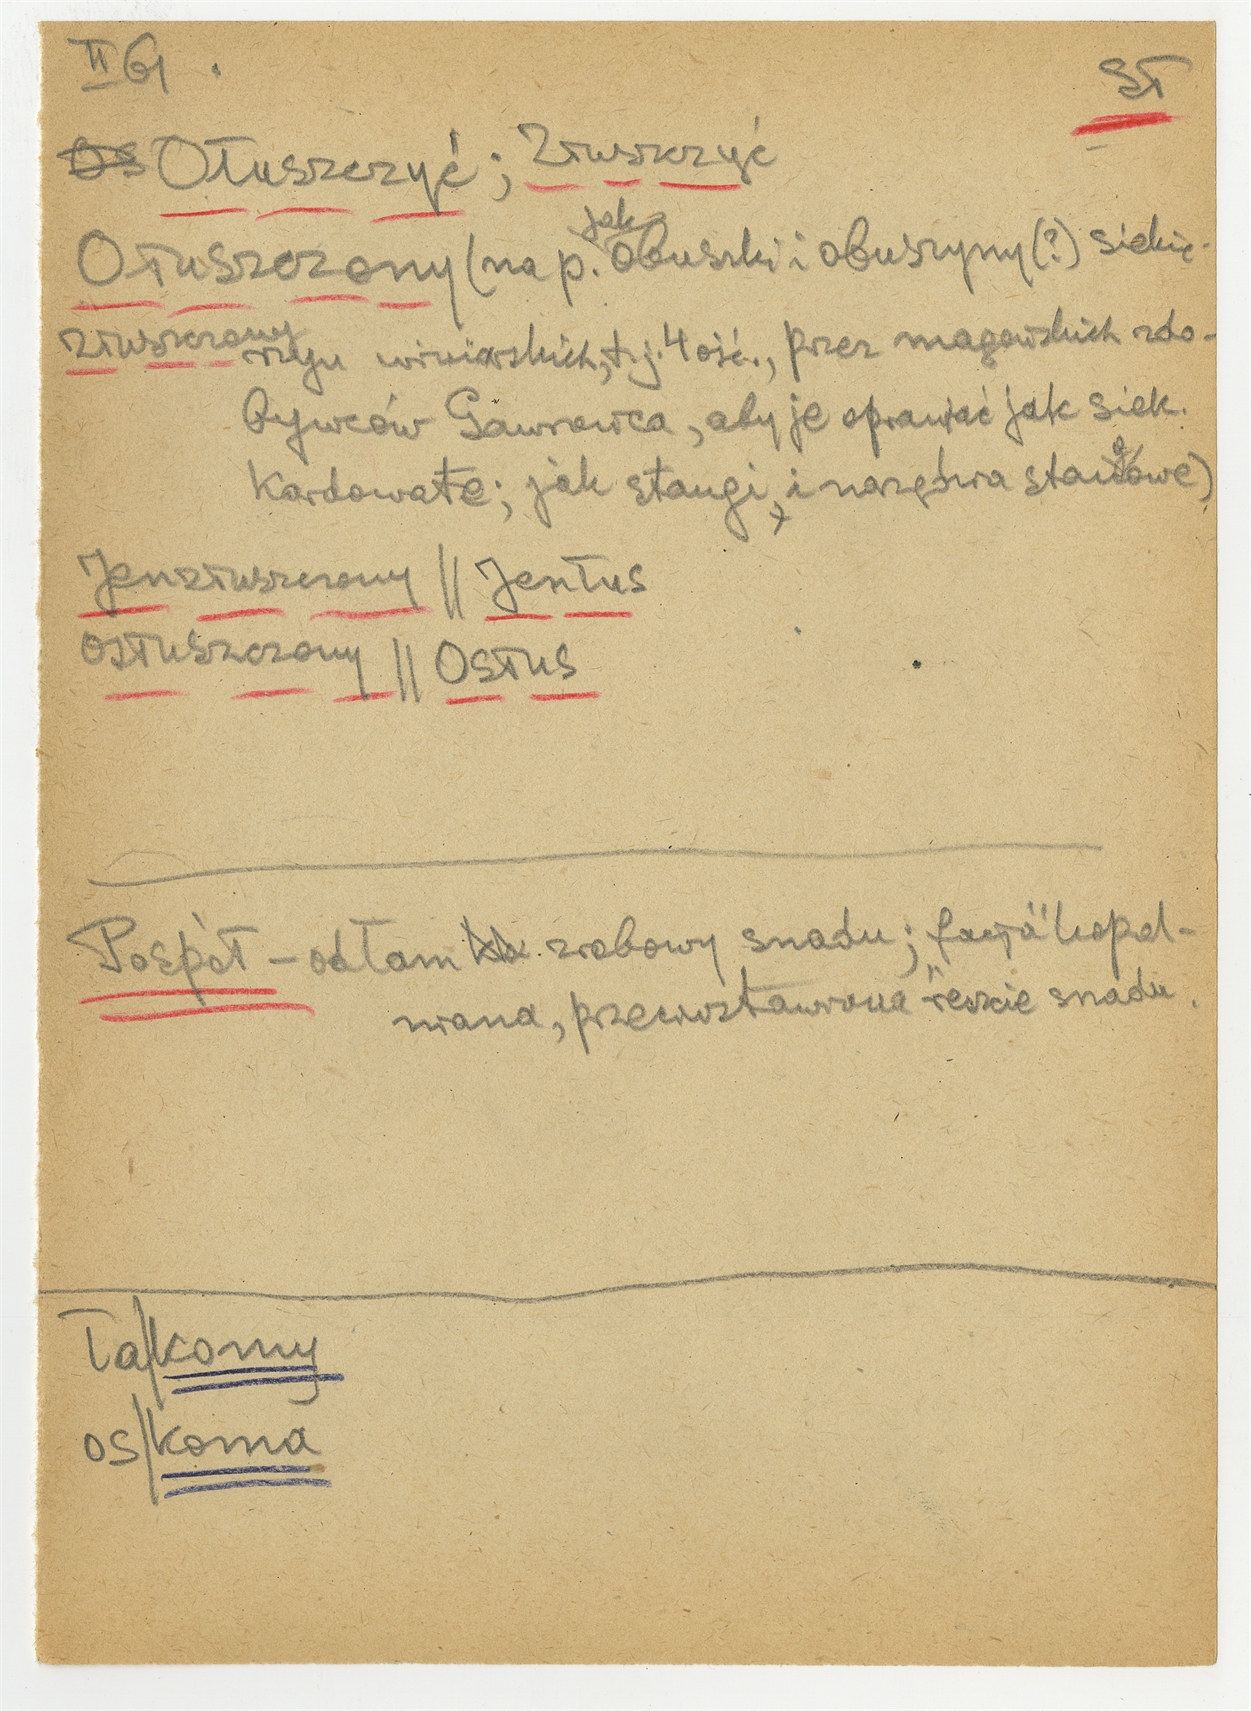 II G1 .
SŁ
Otuszczyć; Ztuszczyć
Otuszczony (nap. jak obuszki i obuszyny (?) siekie-
ztuszczony
winiarskich, t.j. 4 ość., przez magowskich zdo-
bywców Gawrowca, aby je oprawiać jak siek.
Kardowate; jak stangi, i narzędzia
Jenztuszczony || Jentus
Ostuszczony || Ostus
Pospół – odłam zrobowy snadu;
przeciwstawiona snadu.
ła/komy
os/koma